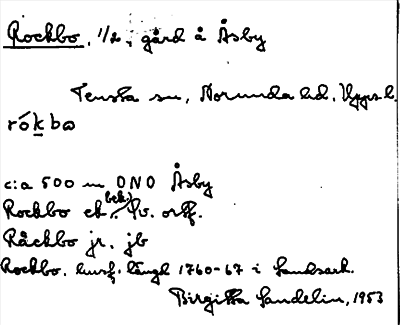 Rockbo, 1/2, gård å Åsby
Tensta sn, Norunda hd, Upps. l.
rókbo
c:a 500 m ONO Åsby
Rockbo ek. (bek.) Sv. ortf.
Råckbo jr. jb
Rockbo. husf. längd 1760-67 i Landsark.
Birgitta Sandelin, 1953